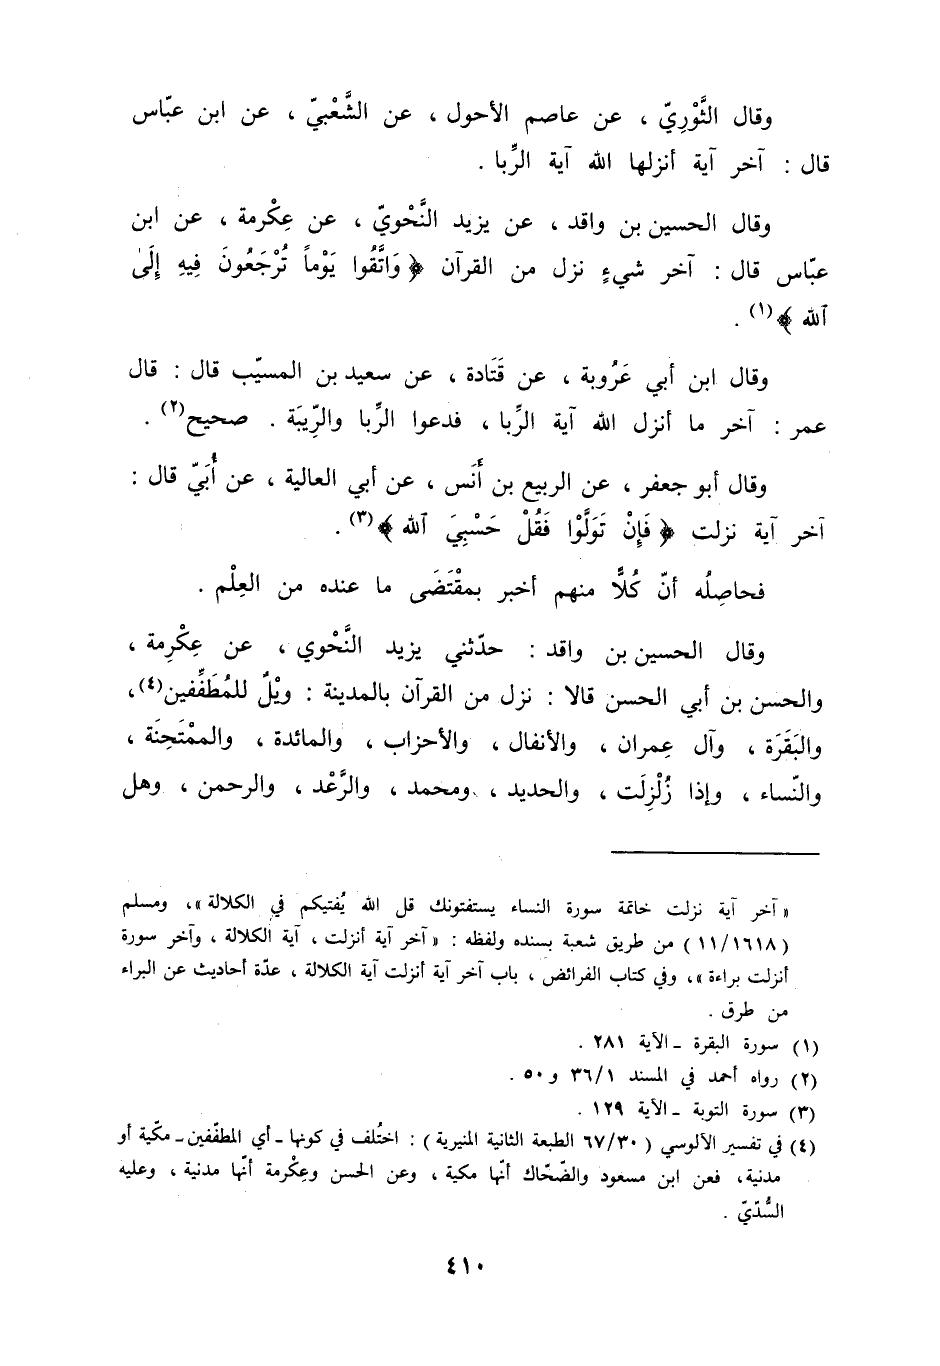 وقال الثَّوْرِيّ ، عن عاصم الأحول ، عن الشَّعْبيّ ، عن ابن عبّاس
قال : آخر آية أنزلها الله آية الرِّبا .
وقال الحسين بن واقد ، عن يزيد النَّحْويّ ، عن عِكْرمة ، عن ابن
عبّاس قال : آخر شيءٍ نزل من القرآن ﴿ وَاتَّقُوا يَوْماً تُرْجَعُونَ فِيهِ إِلَى
ٱلله ﴾(١) .
وقال ابن أبي عَرُوبة ، عن قَتَادة ، عن سعيد بن المسيّب قال : قال
عمر : آخر ما أنزل الله آية الرِّبا ، فدعوا الرِّبا والرِّيبَة . صحيح(٢) .
وقال أبو جعفر ، عن الربيع بن أَنَس ، عن أبي العالية ، عن أُبَيّ قال :
آخر آية نزلت ﴿ فَإِنْ تَوَلَّوْا فَقُلْ حَسْبِيَ ٱلله ﴾(٣) .
فحاصِلُه أنّ كُلًّا منهم أخبر بمقْتَضَى ما عنده من العِلْم .
وقال الحسين بن واقد : حدّثني يزيد النَّحْوي ، عن عِكْرِمة ،
والحسن بن أبي الحسن قالا : نزل من القرآن بالمدينة : ويْلٌ للمُطَفِّفين(٤)،
والبَقَرَة ، وآل عِمران ، والأنفال ، والأحزاب ، والمائدة ، والممْتَحِنَة ،
والنّساء ، وإذا زُلْزِلَت ، والحديد ، ومحمد ، والرَّعْد ، والرحمن ، وهل
« آخر آية نزلت خاتمة سورة النساء يستفتونك قل الله يُفتيكم في الكلالة »، ومسلم
( ١١/١٦١٨ ) من طريق شعبة بسنده ولفظه : « آخر آية أنزلت ، آية الكلالة ، وآخر سورة
أنزلت براءة »، وفي كتاب الفرائض ، باب آخر آية أنزلت آية الكلالة ، عدّة أحاديث عن البراء
من طرق .
(١) سورة البقرة ـ الآية ٢٨١ .
(٢) رواه أحمد في المسند ٣٦/١ و ٥٠ .
(٣) سورة التوبة ـ الآية ١٢٩ .
(٤) في تفسير الآلوسي ( ٦٧/٣٠ الطبعة الثانية المنيرية ) : اختُلف في كونها ـ أي المطفّفين ـ مكّية أو
مدنية، فعن ابن مسعود والضّحّاك أنّها مكية ، وعن الحسن وعِكْرمة أنّها مدنية ، وعليه
السُّدّيّ .
٤١٠